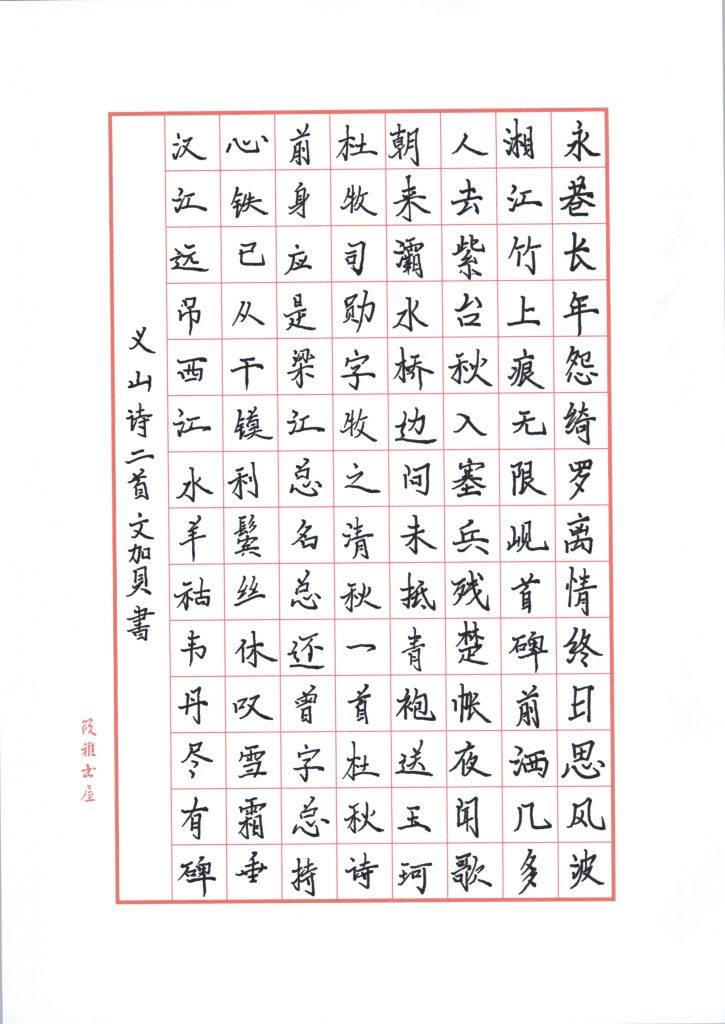 永巷长年怨绮罗离情终日思风波
湘江竹上痕无限岘首碑前洒几多
人去紫台秋入塞兵残楚帐夜闻歌
朝来灞水桥边问未抵青袍送玉珂
杜牧司勋字牧之清秋一首杜秋诗
前身应是梁江总名总还曾字总持
心铁已从干镆利鬓丝休叹雪霜垂
汉江远吊西江水羊祜韦丹尽有碑
义山诗二首 文加贝书
筱雅书屋